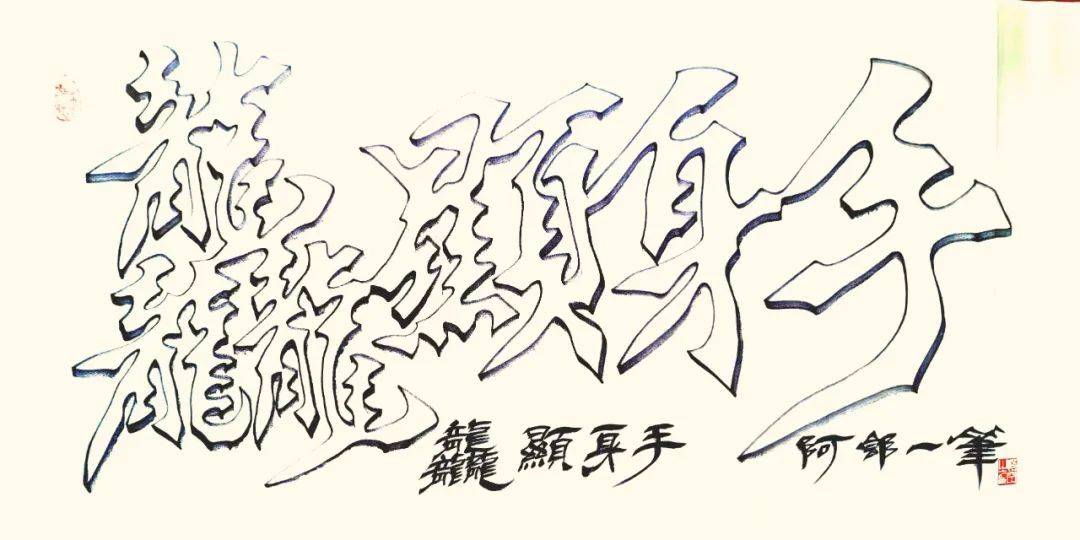 龘顯身手
龘顯身手
阿 一筆